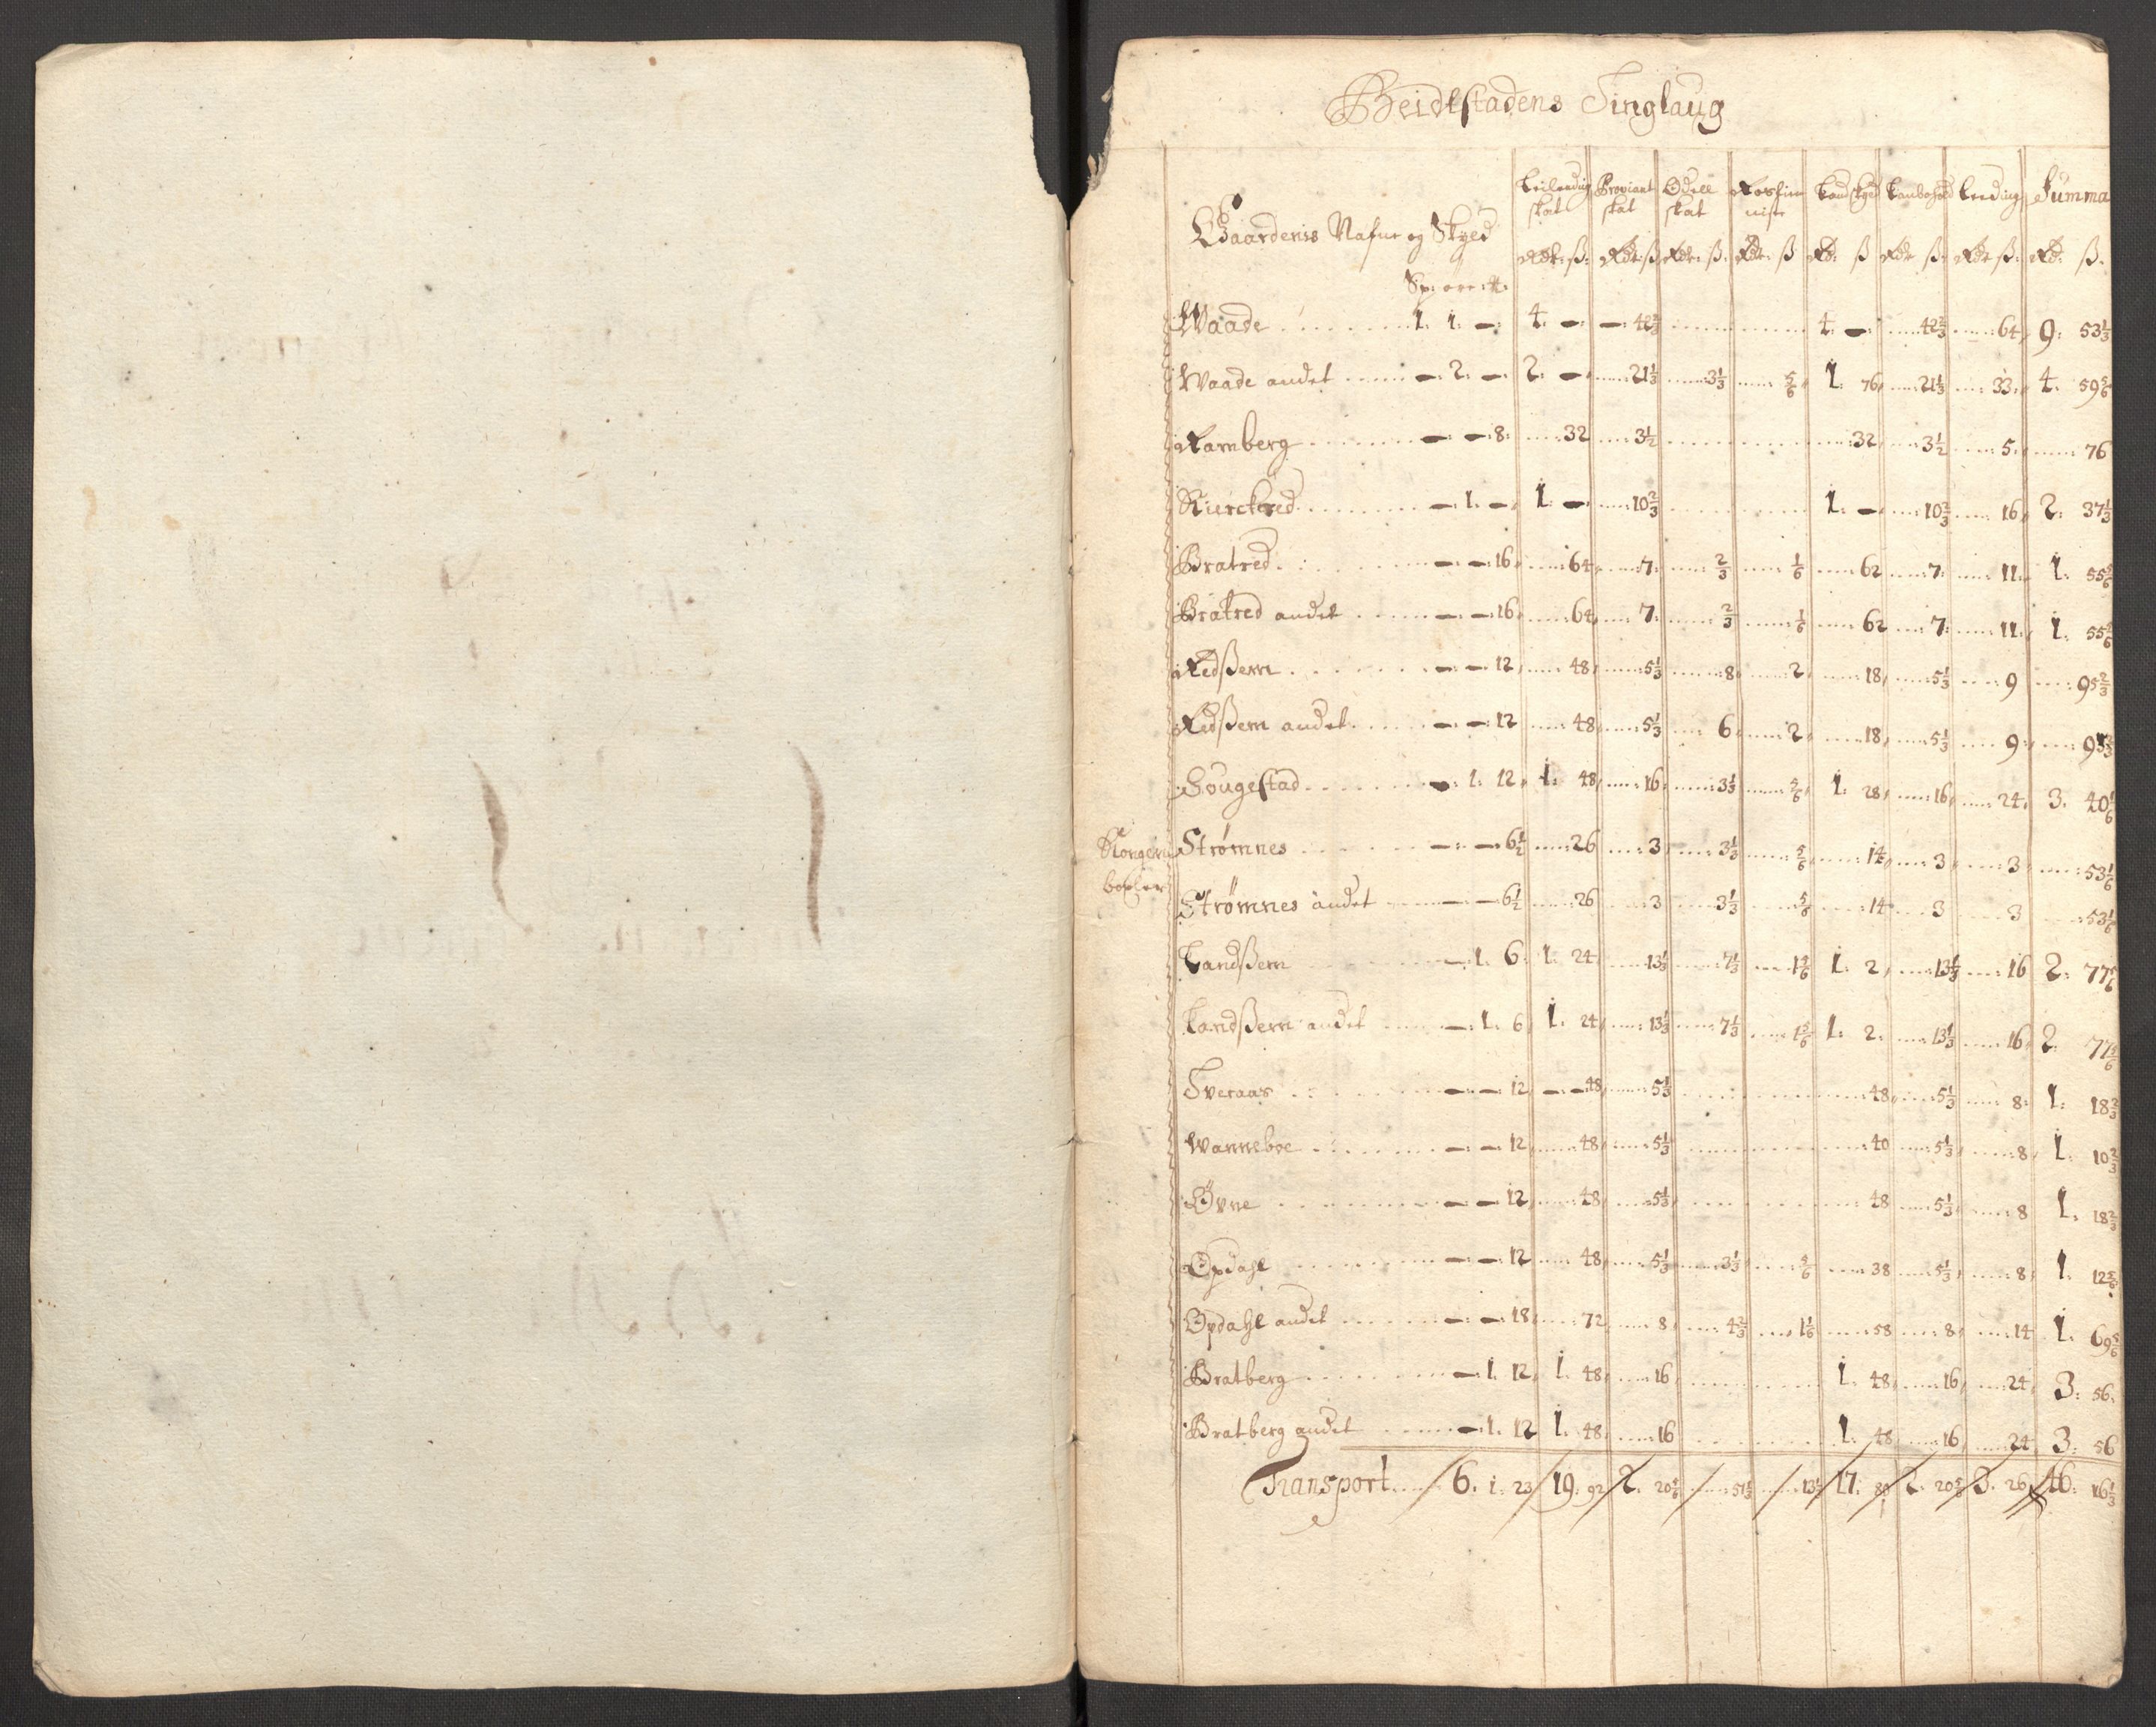 Beidtstadens Tinglaug
Gaardenis Nafne og Skyld Leilending skat Proviant skat Odell skat Rostieniste Landskyld Landbohold Leeding Summa
Sp: øre: #: Rdr: ß: Rdr: ß Rdr: ß. Rdr: ß Rd: ß Rdr ß. Rdr ß: Rd: ß.
Waade 1. 1: – 4. – – 42 2/3 4. – 42 2/3 64 9: 53 1/3
Waade andet – 2. – 2: – 21 1/3 3 1/3 5/6 1: 76 21 1/3 33 4. 59 5/6
Ramberg – – 8: 32 3 1/2 32 3 1/2 5 76
Kierckered – 1. – 1. – 10 2/3 1. – 10 2/3 16 2: 37 1/3
Bratred – – 16 64 7 2/3 1/6 62 7: 11 1: 55 5/6
Bratred andet – – 16 64 7. 2/3 1/6 62 7: 11 1: 55 5/6
Redßem – – 12 48 5 1/3 8 2 18 5 1/3 9 95 2/3
Redßem andet – – 12 48 5 1/3 6 2 18 5 1/3 9 93 2/3
Hougestad – 1. 12 1. 48 16 3 1/3 5/6 1. 28 16 24 3. 40 1/6
Kongens Strømnes – – 6 1/2 26 3 3 1/3 5/6 14 3 3 53 1/6
boxler
Strømnes andet – – 6 1/2 26 3 3 1/3 5/6 14 3 3 53 1/6
Landßem – 1. 6 1. 24 13 1/3 7 1/3 1 5/6 1. 2 13 1/3 16 2: 77 5/6
Landßem andet – 1. 6 1. 24 13 1/3 7 1/3 1 5/6 1. 2. 13 1/3 16 2. 77 5/6
Tveraas – – 12 – – 48 5 1/3 48 5 1/3 8 1: 18 2/3
Wanneboe – – 12 48 5 1/3 40 5 1/3 8 1. 10 2/3
Øvne – – 12 48 5 1/3 48 5 1/3 8 1. 18 2/3
Opdahl – – 12 48 5 1/3 3 1/3 5/6 38 5 1/3 8 1. 12 5/6
Opdahl andet – – 18 72 8 4 2/3 1 1/6 58 8 14 1: 69 5/6
Bratberg – 1. 12 1. 48 16 1. 48 16 24 3: 56
Bratberg andet – 1. 12 1. 48 16 1. 48 16 24 3: 56
Transport 6. 1: 23 19: 92 2. 20 5/6 51 1/3 13 1/2 17: 80 2. 20 5/6 3. 26 46: 16 1/3